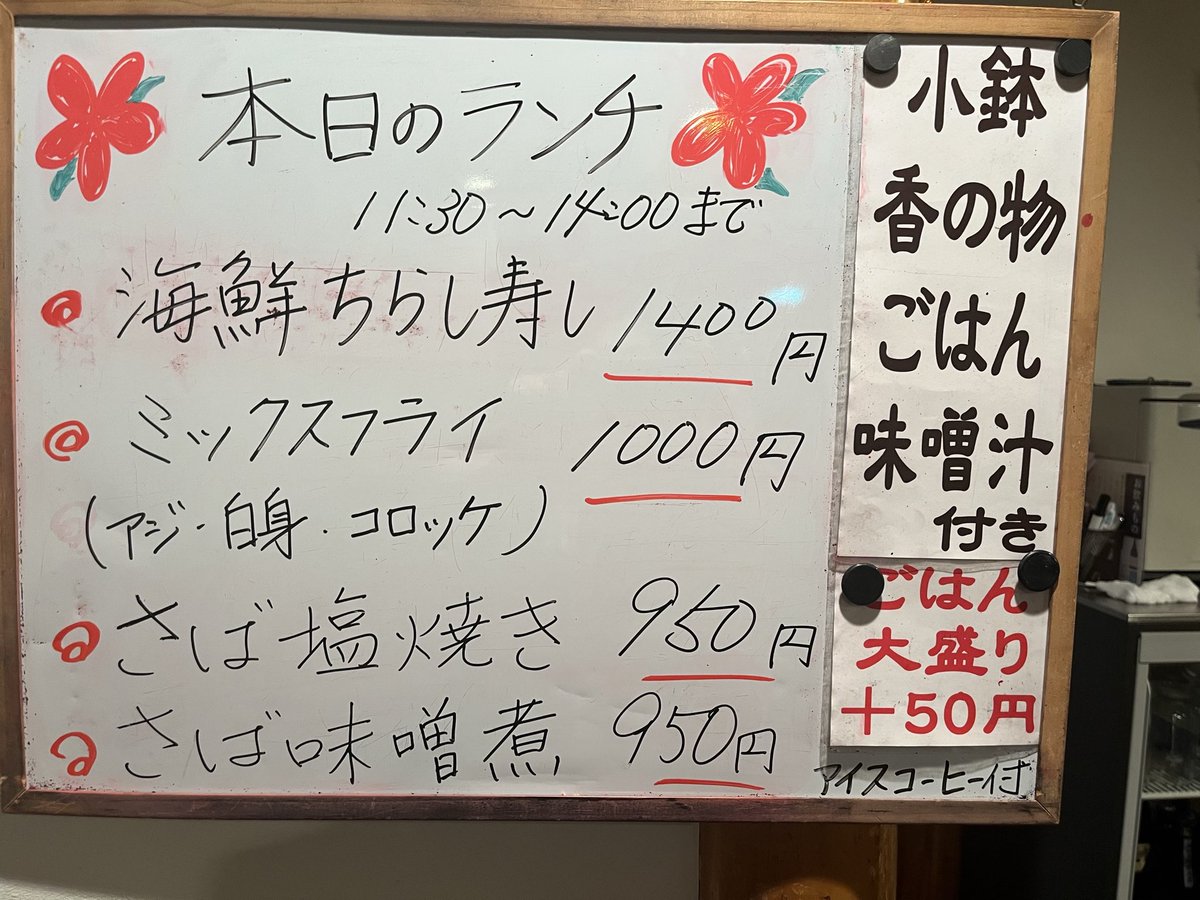 本日のランチ
11:30〜14:00まで
海鮮ちらし寿し 1400円
ミックスフライ 1000円
(アジ・白身・コロッケ)
さば塩焼き 950円
さば味噌煮 950円
小鉢
香の物
ごはん
味噌汁
付き
ごはん
大盛り
＋50円
アイスコーヒー付